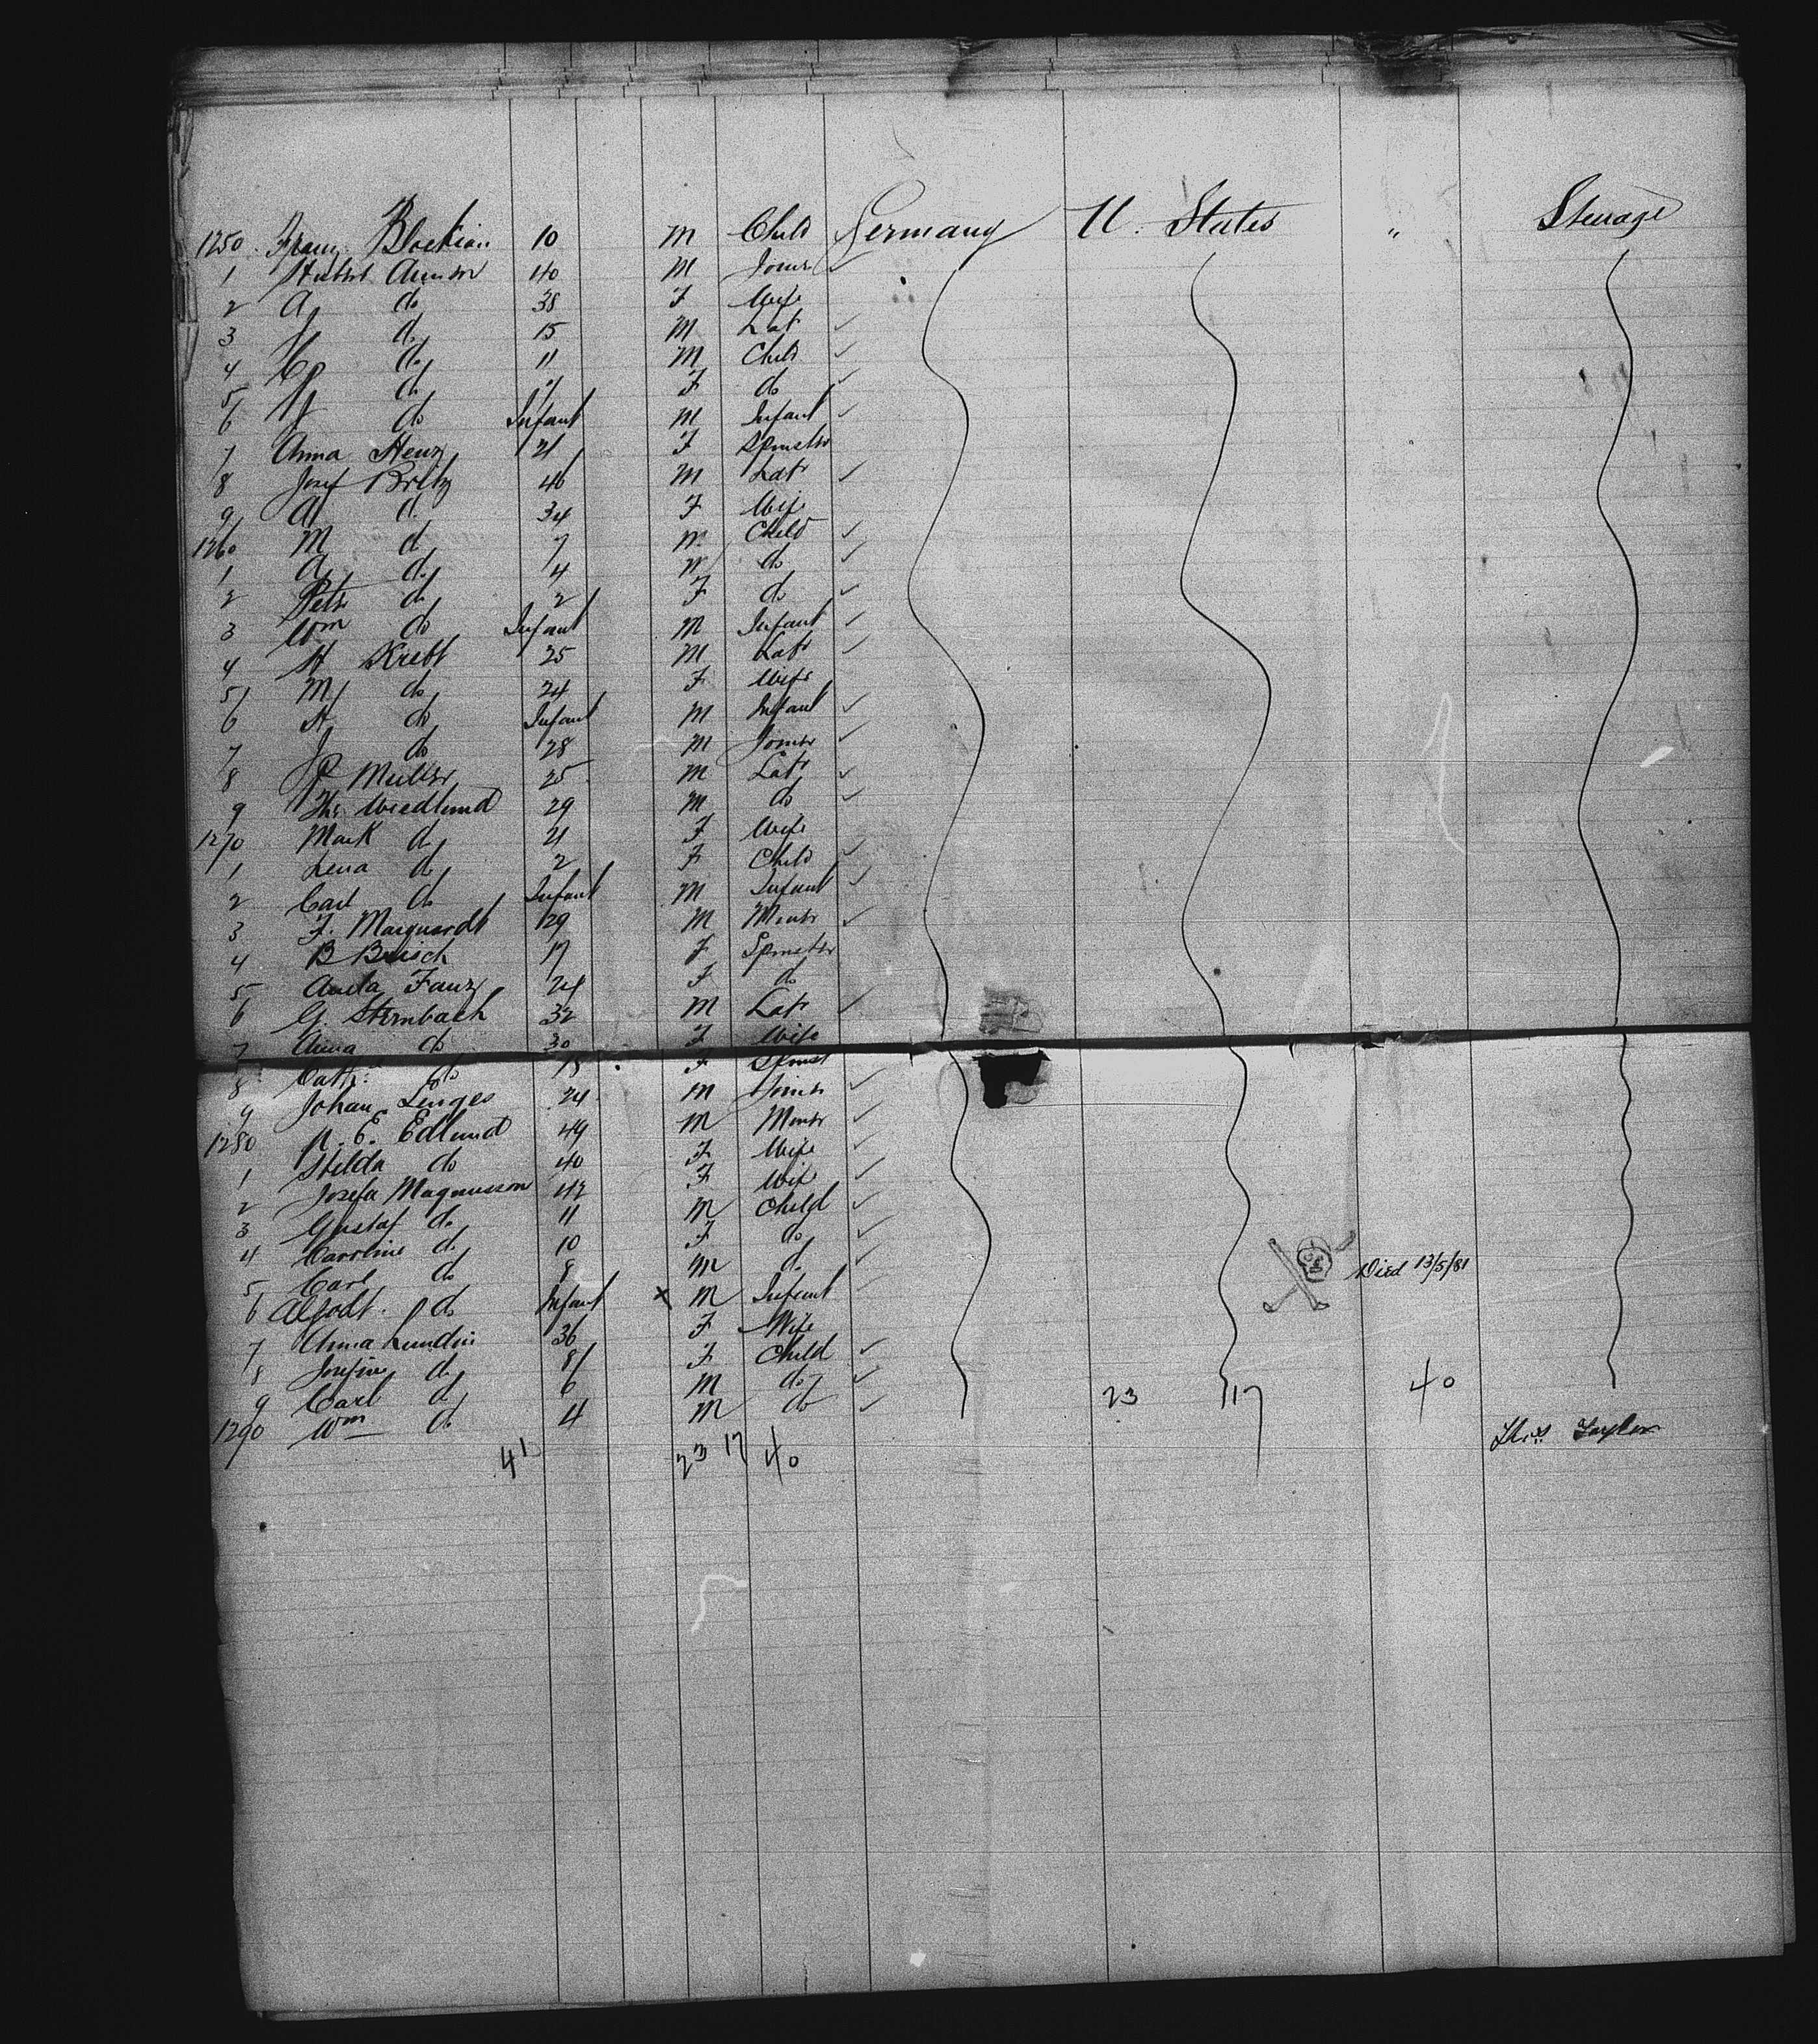 1250 Franz Blockian 10 M Child Germany U. States " Steerage
1 Hubert 40 M
2 A do 38 F Wife
3 do 15 M Labr
4 do 11 M Child
5 do F do
6 do Infant M Infant
7 Anna Henz 21 F Spinster
8 Josef Britz 46 M Labr
9 A do 34 F Wife
1260 M do 7 M Child
1 A do 4 M do
2 Petr do 2 F do
3 Wm do Infant M Infant
4 H Krebt 25 M Labr
5 M do 24 F Wife
6 H do Infant M Infant
7 J do 28 M
8 P Muller 25 M Labr
9 Wiedlund 29 M do
1270 Mark do 21 F Wife
1 Lena do 2 F Child
2 Carl do Infant M Infant
3 F. Marquardt 29 M
4 B Brisch 17 F Spinster
5 Fanz 24 F do
6 G. Sternbach 32 M Labr
7 Anna do 30 F Wife
8 Cath: do 18 F Spinst
9 Johan Linges 24 M
1280 E. Edlund 49 M
1 Hilda do 40 F Wife
2 Josefa Magnusson 42 F Wife
3 Gustaf do 11 M Child
4 Carroline do 10 F do
5 Carl do 8 M do Died 13/5/81
6 do Infant x M Infant
7 Anna Lundin 36 F Wife
8 Josefine do 8 F Child
9 Carl do 6 M do 23 17 40
1290 Wm do 4 M do
41 23 17 40 Thos Taylor